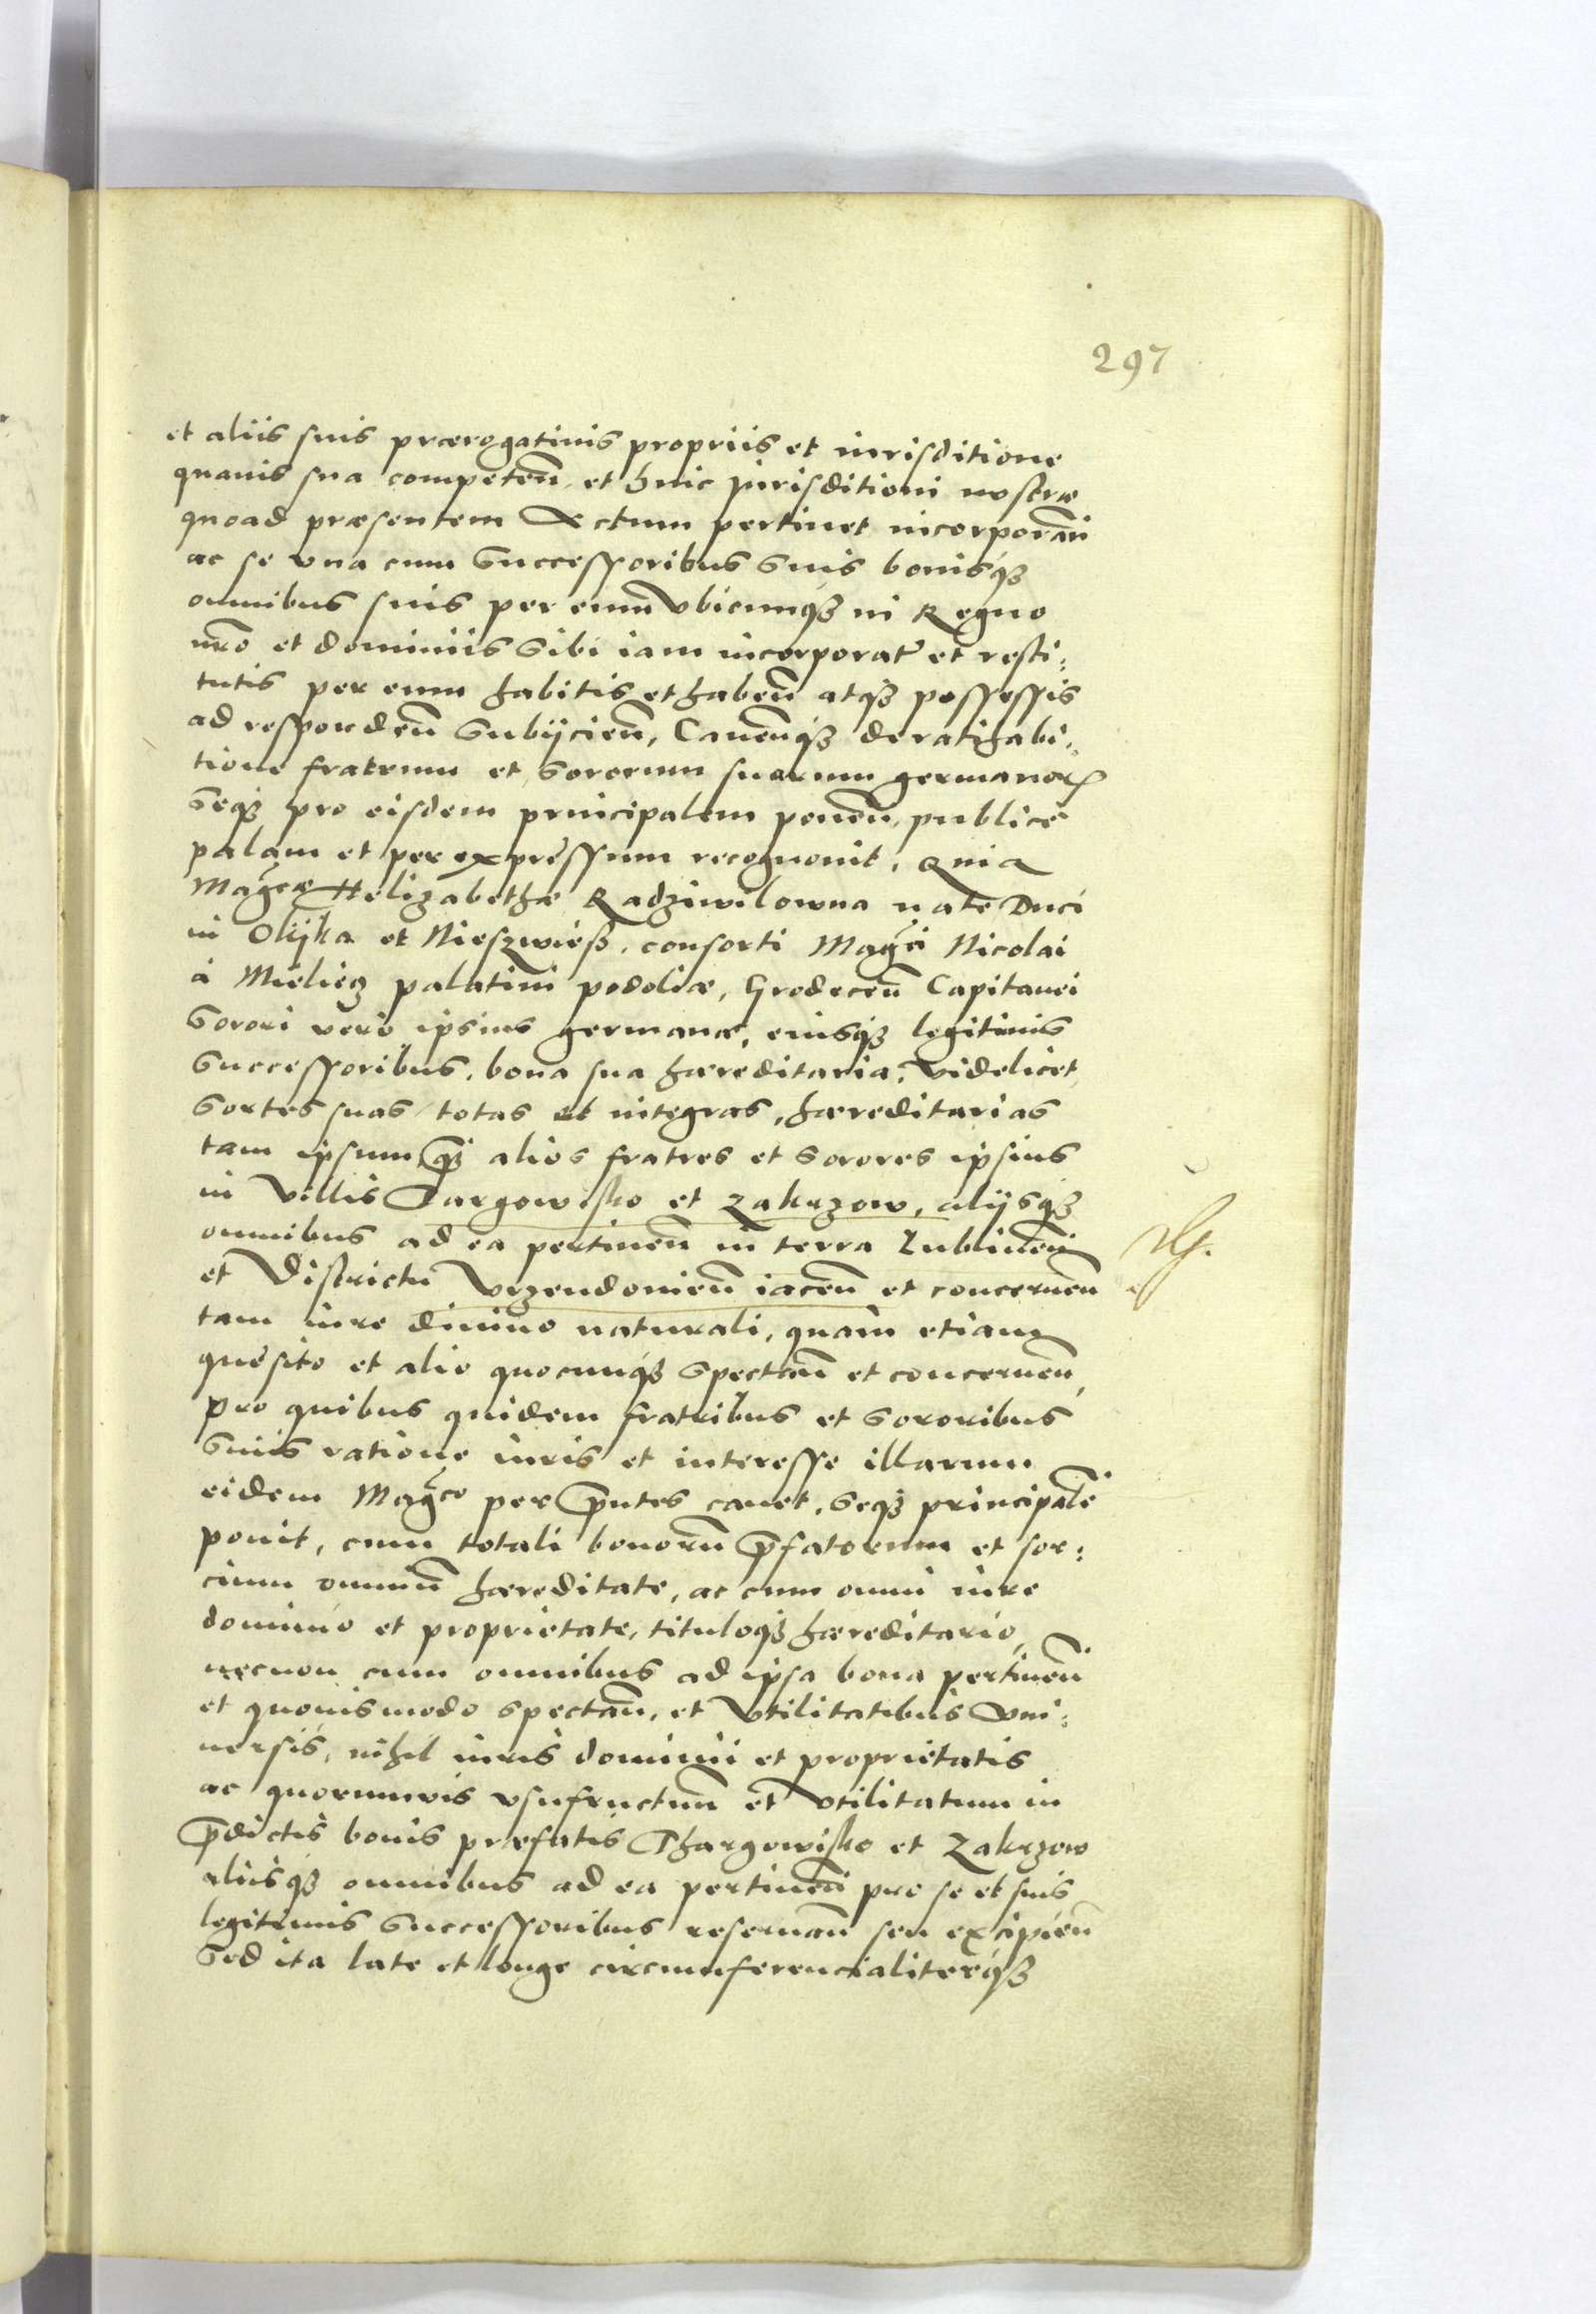 297
et aliis suis prærogatiuis propriis et iurisditione
quauis sua competen̄, et huic Jurisditioni nostræ
quoad præsentem Actum pertinet incorporan̄
ac se vna cum Successoribus Suis bonisq3
omnibus suis per eum vbicumq3 in Regno
nr̄o et dominiis Sibi iam incorporat' et resti:
tutis per eum habitis et haben̄ atq3 possessis
ad responden̄ Subijcien̄, Cauenq3 de ratihabi:
tione fratrum et Sororum suarum germanor
Seq3 pro eisdem principalem ponen̄, publice
palam et per expressum recognouit, Quia
Magcæ Helizabethæ Radziwilowna natæ Duci
in Olijka et Nieszwiesz, consorti Magci Nicolai
à Mieliecz palatini podoliæ, Grodecen̄ Capitanei
Sorori vero ipsius germanæ, eiusq3 legitimis
Successoribus, bona sua hæreditaria, Videlicet
Sortes suas totas et integras, hæreditarias
tam ipsum q̄3 alios fratres et Sorores ipsius
in Villis Targowisko et Zakrzow, alijsq3
omnibus ad ea pertinen̄ in terra Lublinen̄
et Districtu Vrzendouien̄ iacen̄ et concernen̄
tam iure diuino naturali, quam etiam
quesito et alio quocunq3 Spectan̄ et concernen̄,
Pro quibus quidem fratribus et Sororibus
Suis ratione iuris et interesse illarum
eidem Magco per p̄ntes cauet, Seq3 principale
ponit, cum totali bonorū p̄fatorum et sor:
cium omniū hæreditate, ac cum omni iure
dominio et proprietate, tituloq3 hæreditario,
necnon cum omnibus ad ipsa bona pertinen̄
et quouismodo spectan̄, et Vtilitatibus Vni:
uersis, nihil iuris dominii et proprietatis
ac quorumvis vsufructum et Vtilitatum in
p̄dictis bonis præfatis Thargowisko et Zakrzow
aliisq3 omnibus ad ea pertinen̄ pro se et suis
legitimis Successoribus reseruan̄ seu excipien̄
Sed ita late et longe circumferencialiterq3